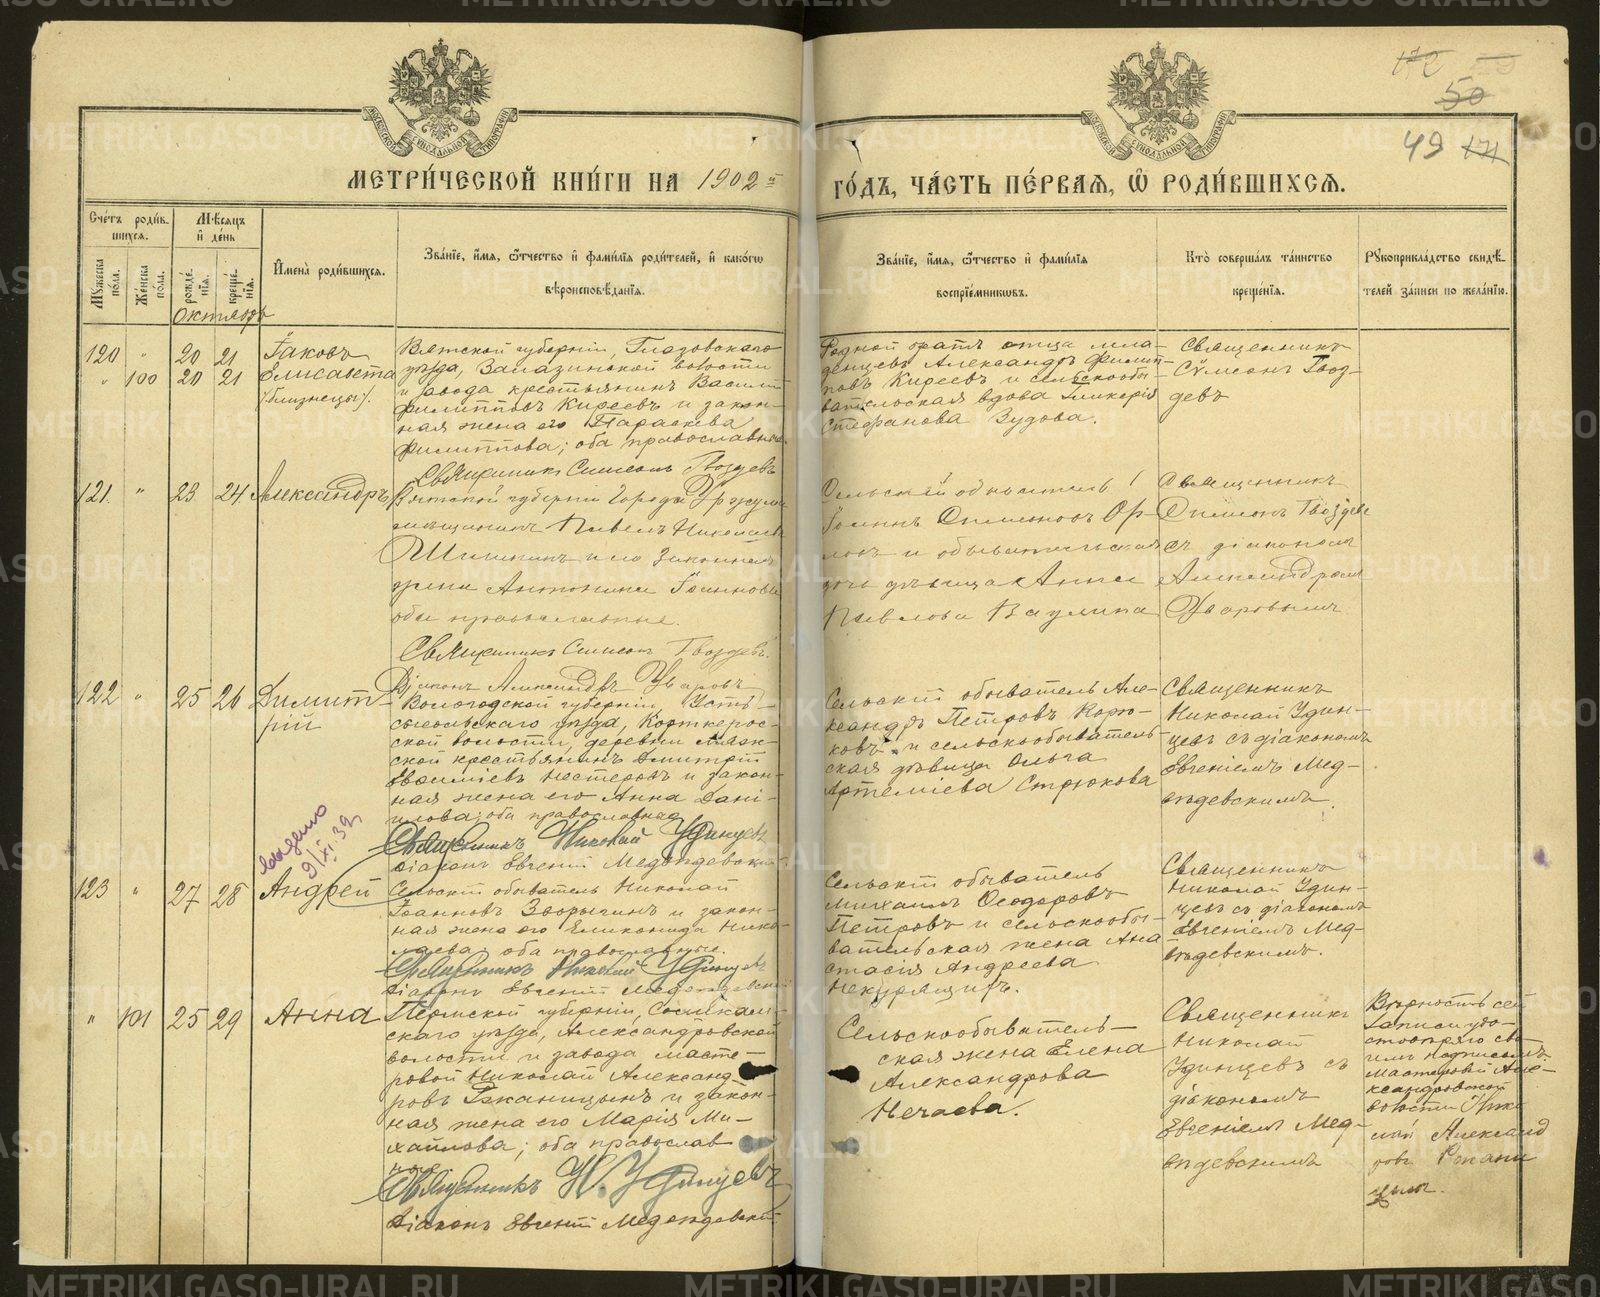 172 50
49 171
МЕТРИ́ЧЕСКОЙ КНИ́ГИ НА 1902й
ГО́ДЪ, ЧА́СТЬ ПЕ́РВАЯ, Ѡ РОДИ́ВШИХСЯ.
Сче́тъ роди́вшихся.
Мꙋ́жеска по́ла.
Же́нска по́ла.
Мѣ́сяцъ и҆ де́нь
рожде́нїя.
креще́нїя.
Октябрь
И҆мена̀ роди́вшихся.
Зва́нїе, и҆́мя, ѻ҆́тчество и҆ фами́лїя роди́телей, и҆ како́гѡ
вѣроисповѣ́данїя.
Зва́нїе, и҆́мя, ѻ҆́тчество и҆ фами́лїя
воспрїе́мникѡвъ.
Кто̀ соверша́лъ та́инство
креще́нїя.
Рꙋкоприкла́дство свидѣ́-
телей за́писи по жела́нїю.
120 " 20 21 Іаковъ
" 100 20 21 Елисавета
(близнецы).
Вятской губерніи, Глазовскаго
уѣзда, Залазинской волости
и завода крестьянинъ Василій
Филипповъ Киреевъ и закон-
ная жена его Параскева
Филиппова; оба православные.
Священникъ Симеонъ Гвоздевъ
Родной братъ отца мла-
денцевъ Александръ Филип-
повъ Киреевъ и сельскообы-
вательская вдова Гликерія
Стефанова Зудова.
Священникъ
Сѵмеонъ Гвоз-
девъ
121. " 23 24 Александръ
Вятской губерніи города Уржума
мѣщанинъ Павелъ Николаевъ
Шишкинъ и его законная
жена Антонина Іоаннова
оба православные.
Священникъ Симеонъ Гвоздевъ.
Діаконъ Александръ Уваровъ
Сельскій обыватель
Іоаннъ Симеоновъ Ор-
ловъ и обывательская
дочь дѣвица Анна
Павлова Ваулина
Священникъ
Симеонъ Гвоздевъ
съ діакономъ
Александромъ
Уваровымъ
122 " 25 26 Димит-
рій
Вологодской губерніи, Усть-
сысольскаго уѣзда, Корткерос-
ской волости, деревни
ской крестьянинъ Димитрій
Евѳиміевъ Нестеровъ и закон-
ная жена его Анна Дані-
илова; оба православные
Священникъ Николай Удинцевъ
Діаконъ Евгеній Медвѣдевскій
Сельскій обыватель Але-
ксандръ Петровъ Корю-
ковъ и сельскообыватель-
ская дѣвица Ольга
Артеміева Стрюкова
Священникъ
Николай Удин-
цевъ съ діакономъ
Евгеніемъ Мед-
вѣдевскимъ.
9/XI 39
123 " 27 28 Андрей
Сельскій обыватель Николай
Іоанновъ Зворыгинъ и закон-
ная жена его Еликонида Нико-
лаева; оба православные.
Священникъ Николай Удинцевъ
Діаконъ Евгеній Медвѣдевскій
Сельскій обыватель
Михаилъ Ѳеодоровъ
Петровъ и сельскообы-
вательская жена Ана-
стасія Андреева
Некурящихъ.
Священникъ
Николай Удин-
цевъ съ діакономъ
Евгеніемъ Мед-
вѣдевскимъ.
" 101 25 29 Анна
Пермской губерніи, Соликам-
скаго уѣзда, Александровской
волости и завода масте-
ровой Николай Александ-
ровъ Ржаницынъ и закон-
ная жена его Марія Ми-
хайлова; оба православ-
ные
Священникъ Н. Удинцевъ
Діаконъ Евгеній Медвѣдевскій
Сельскообыватель-
ская жена Елена
Александрова
Нечаева.
Священникъ
Николай
Удинцевъ съ
діакономъ
Евгеніемъ Мед-
вѣдевскимъ
Вѣрность сей
записи удо-
стовѣряю сво-
имъ подписомъ
мастеровой Але-
ксандровской
волости Нико-
лай Александ
ровъ Ржани
цынъ.
METRIKI.GASO-URAL.RU